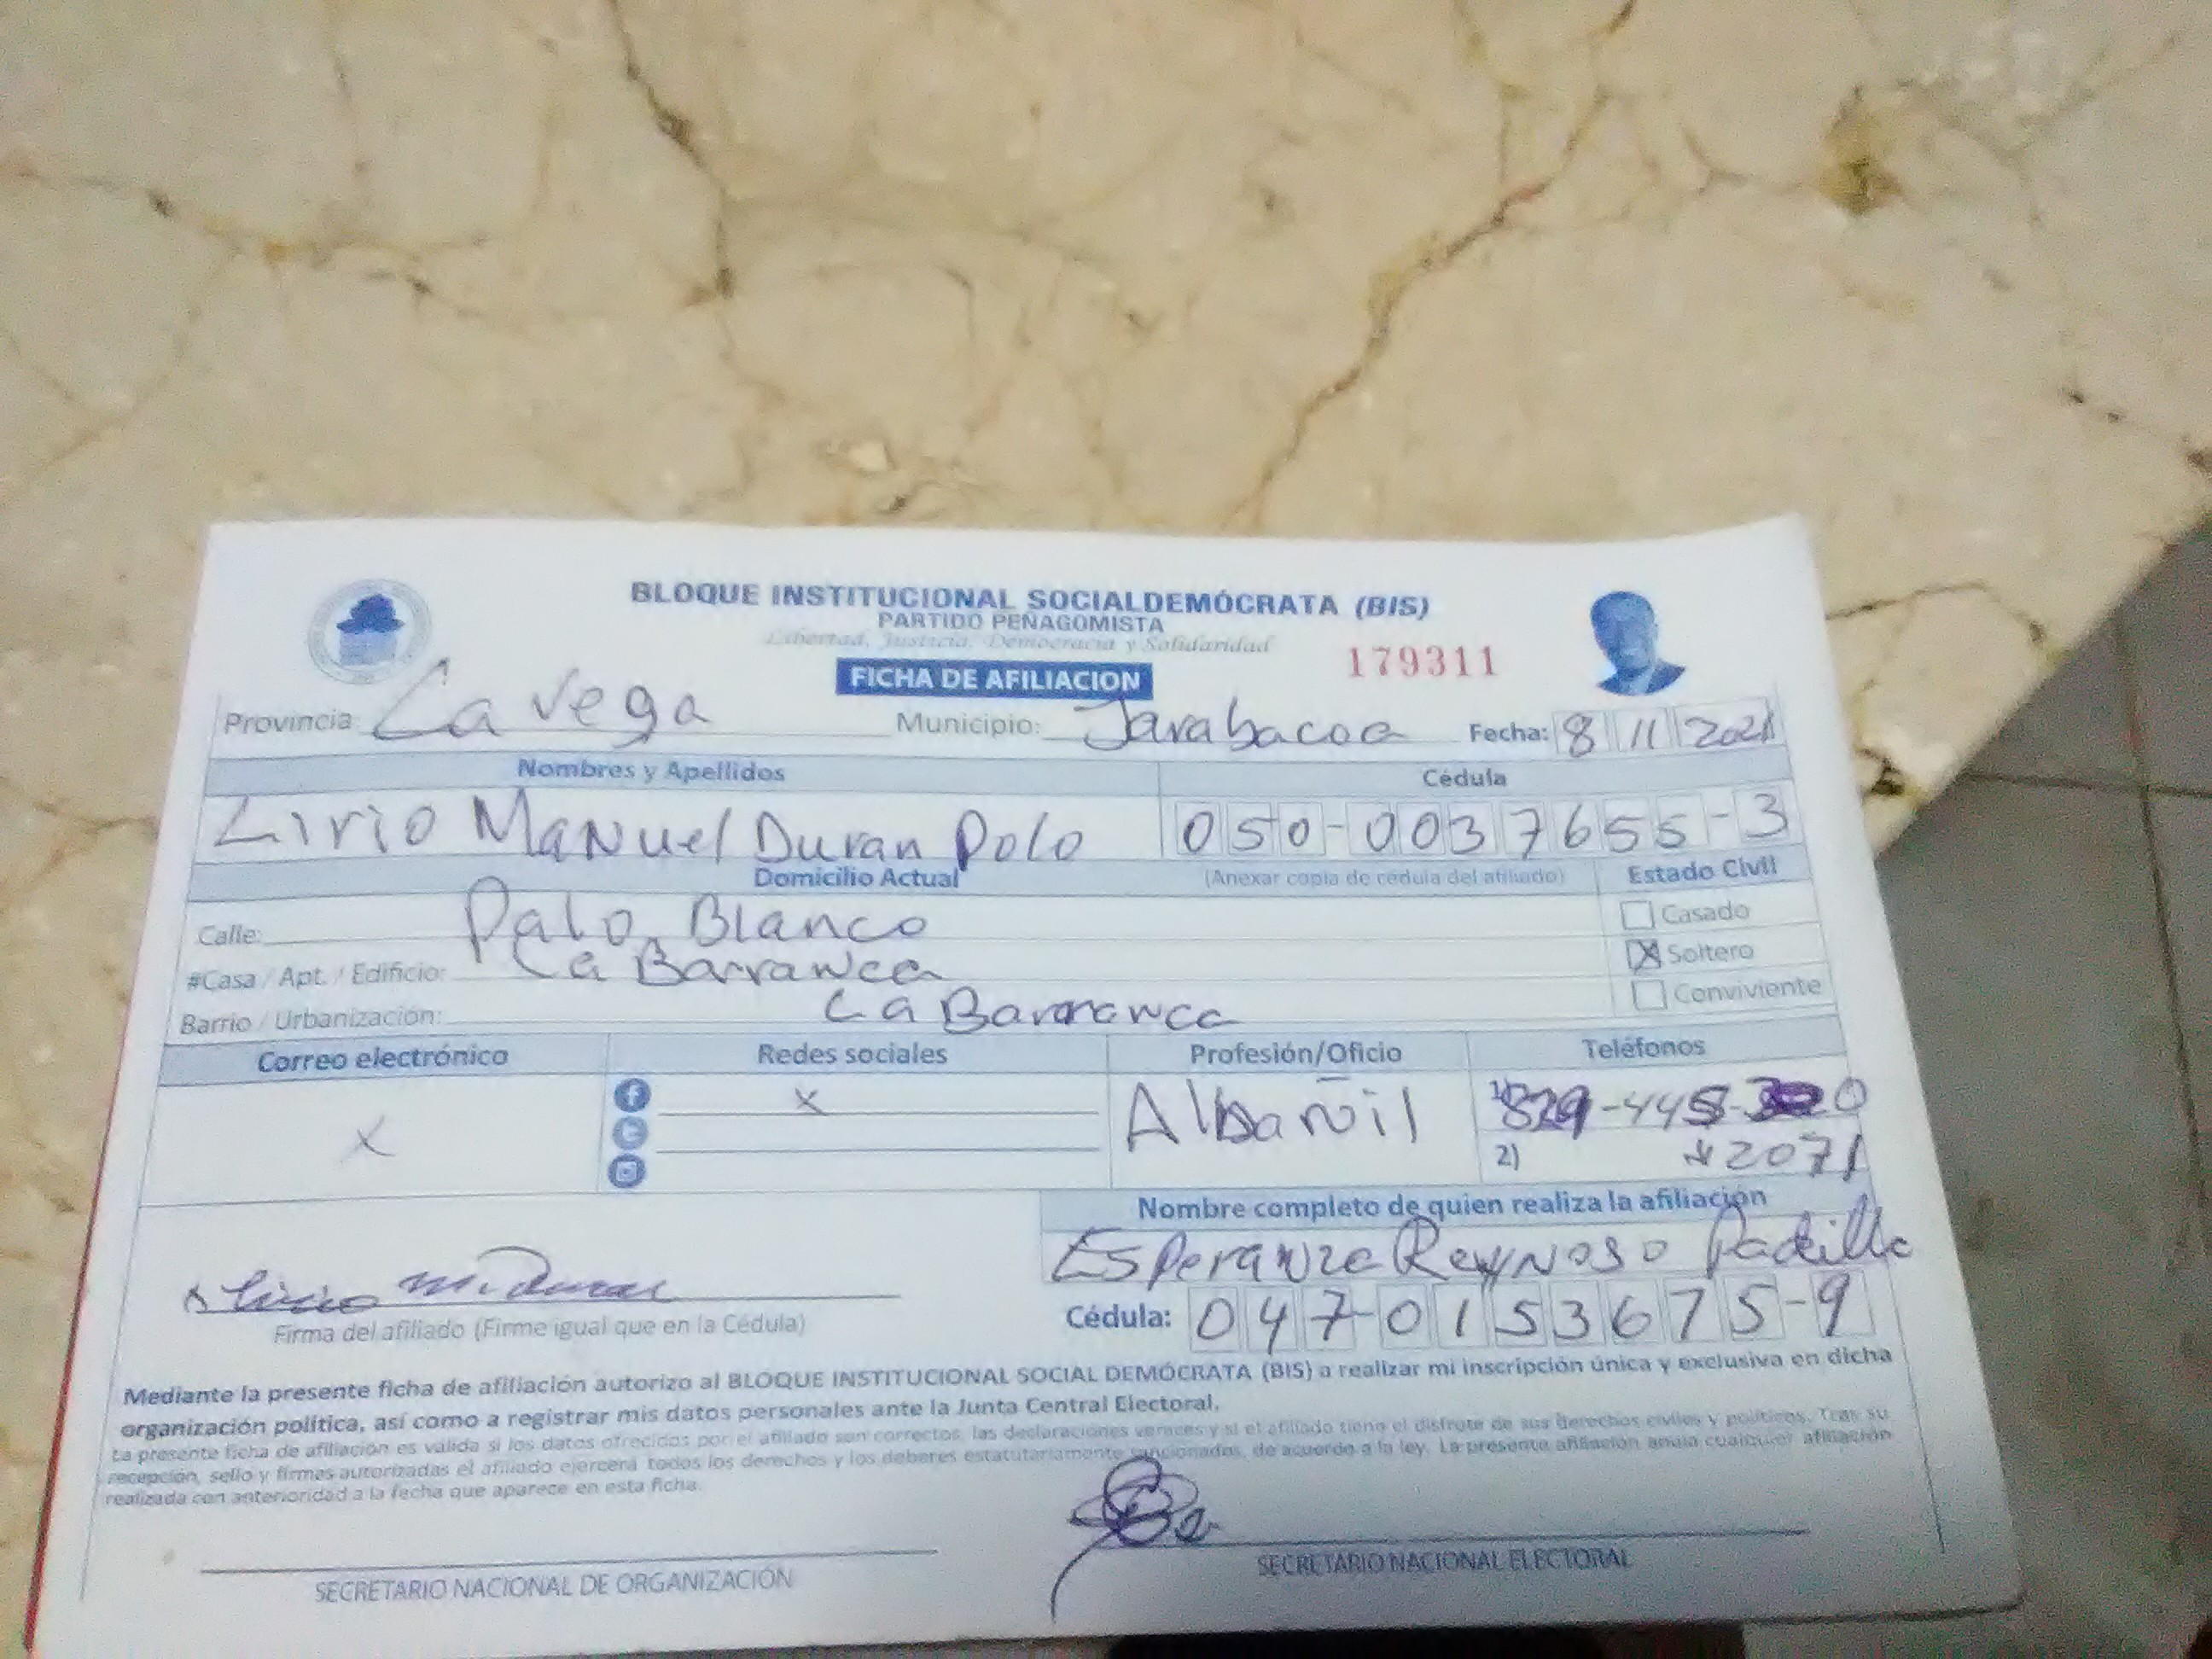 BLOQUE INSTITUCIONAL SOCIALDEMÓCRATA (BIS)
PARTIDO PEÑAGOMISTA
Libertad, Justicia, Democracia y Solidaridad
179311
FICHA DE AFILIACION
Provincia: La Vega Municipio: Jarabacoa Fecha: 8 11 2021
Nombres y Apellidos Cédula
Lirio Manuel Duran Polo 050-0037655-3
Domicilio Actual (Anexar copia de cédula del afiliado) Estado Civil
Calle: Palo Blanco Casado
#Casa / Apt. / Edificio: La Barranca X Soltero
Barrio / Urbanización: La Barranca Conviviente
Correo electrónico Redes sociales Profesión/Oficio Teléfonos
X X Albañil 1) 829-445-
2) 2071
Nombre completo de quien realiza la afiliación
Esperanza Reynoso Padilla
Lirio M. Duran
Cédula: 047-0153675-9
Firma del afiliado (Firme igual que en la Cédula)
Mediante la presente ficha de afiliación autorizo al BLOQUE INSTITUCIONAL SOCIAL DEMÓCRATA (BIS) a realizar mi inscripción única y exclusiva en dicha
organización política, así como a registrar mis datos personales ante la Junta Central Electoral.
La presente ficha de afiliación es válida si los datos ofrecidos por el afiliado son correctos, las declaraciones veraces y si el afiliado tiene el disfrute de sus derechos civiles y políticos. Tras su
recepción, sello y firmas autorizadas el afiliado ejercerá todos los derechos y los deberes estatutariamente sancionados, de acuerdo a la ley. La presente afiliación anula cualquier afiliación
realizada con anterioridad a la fecha que aparece en esta ficha.
SECRETARIO NACIONAL DE ORGANIZACIÓN SECRETARIO NACIONAL ELECTORAL